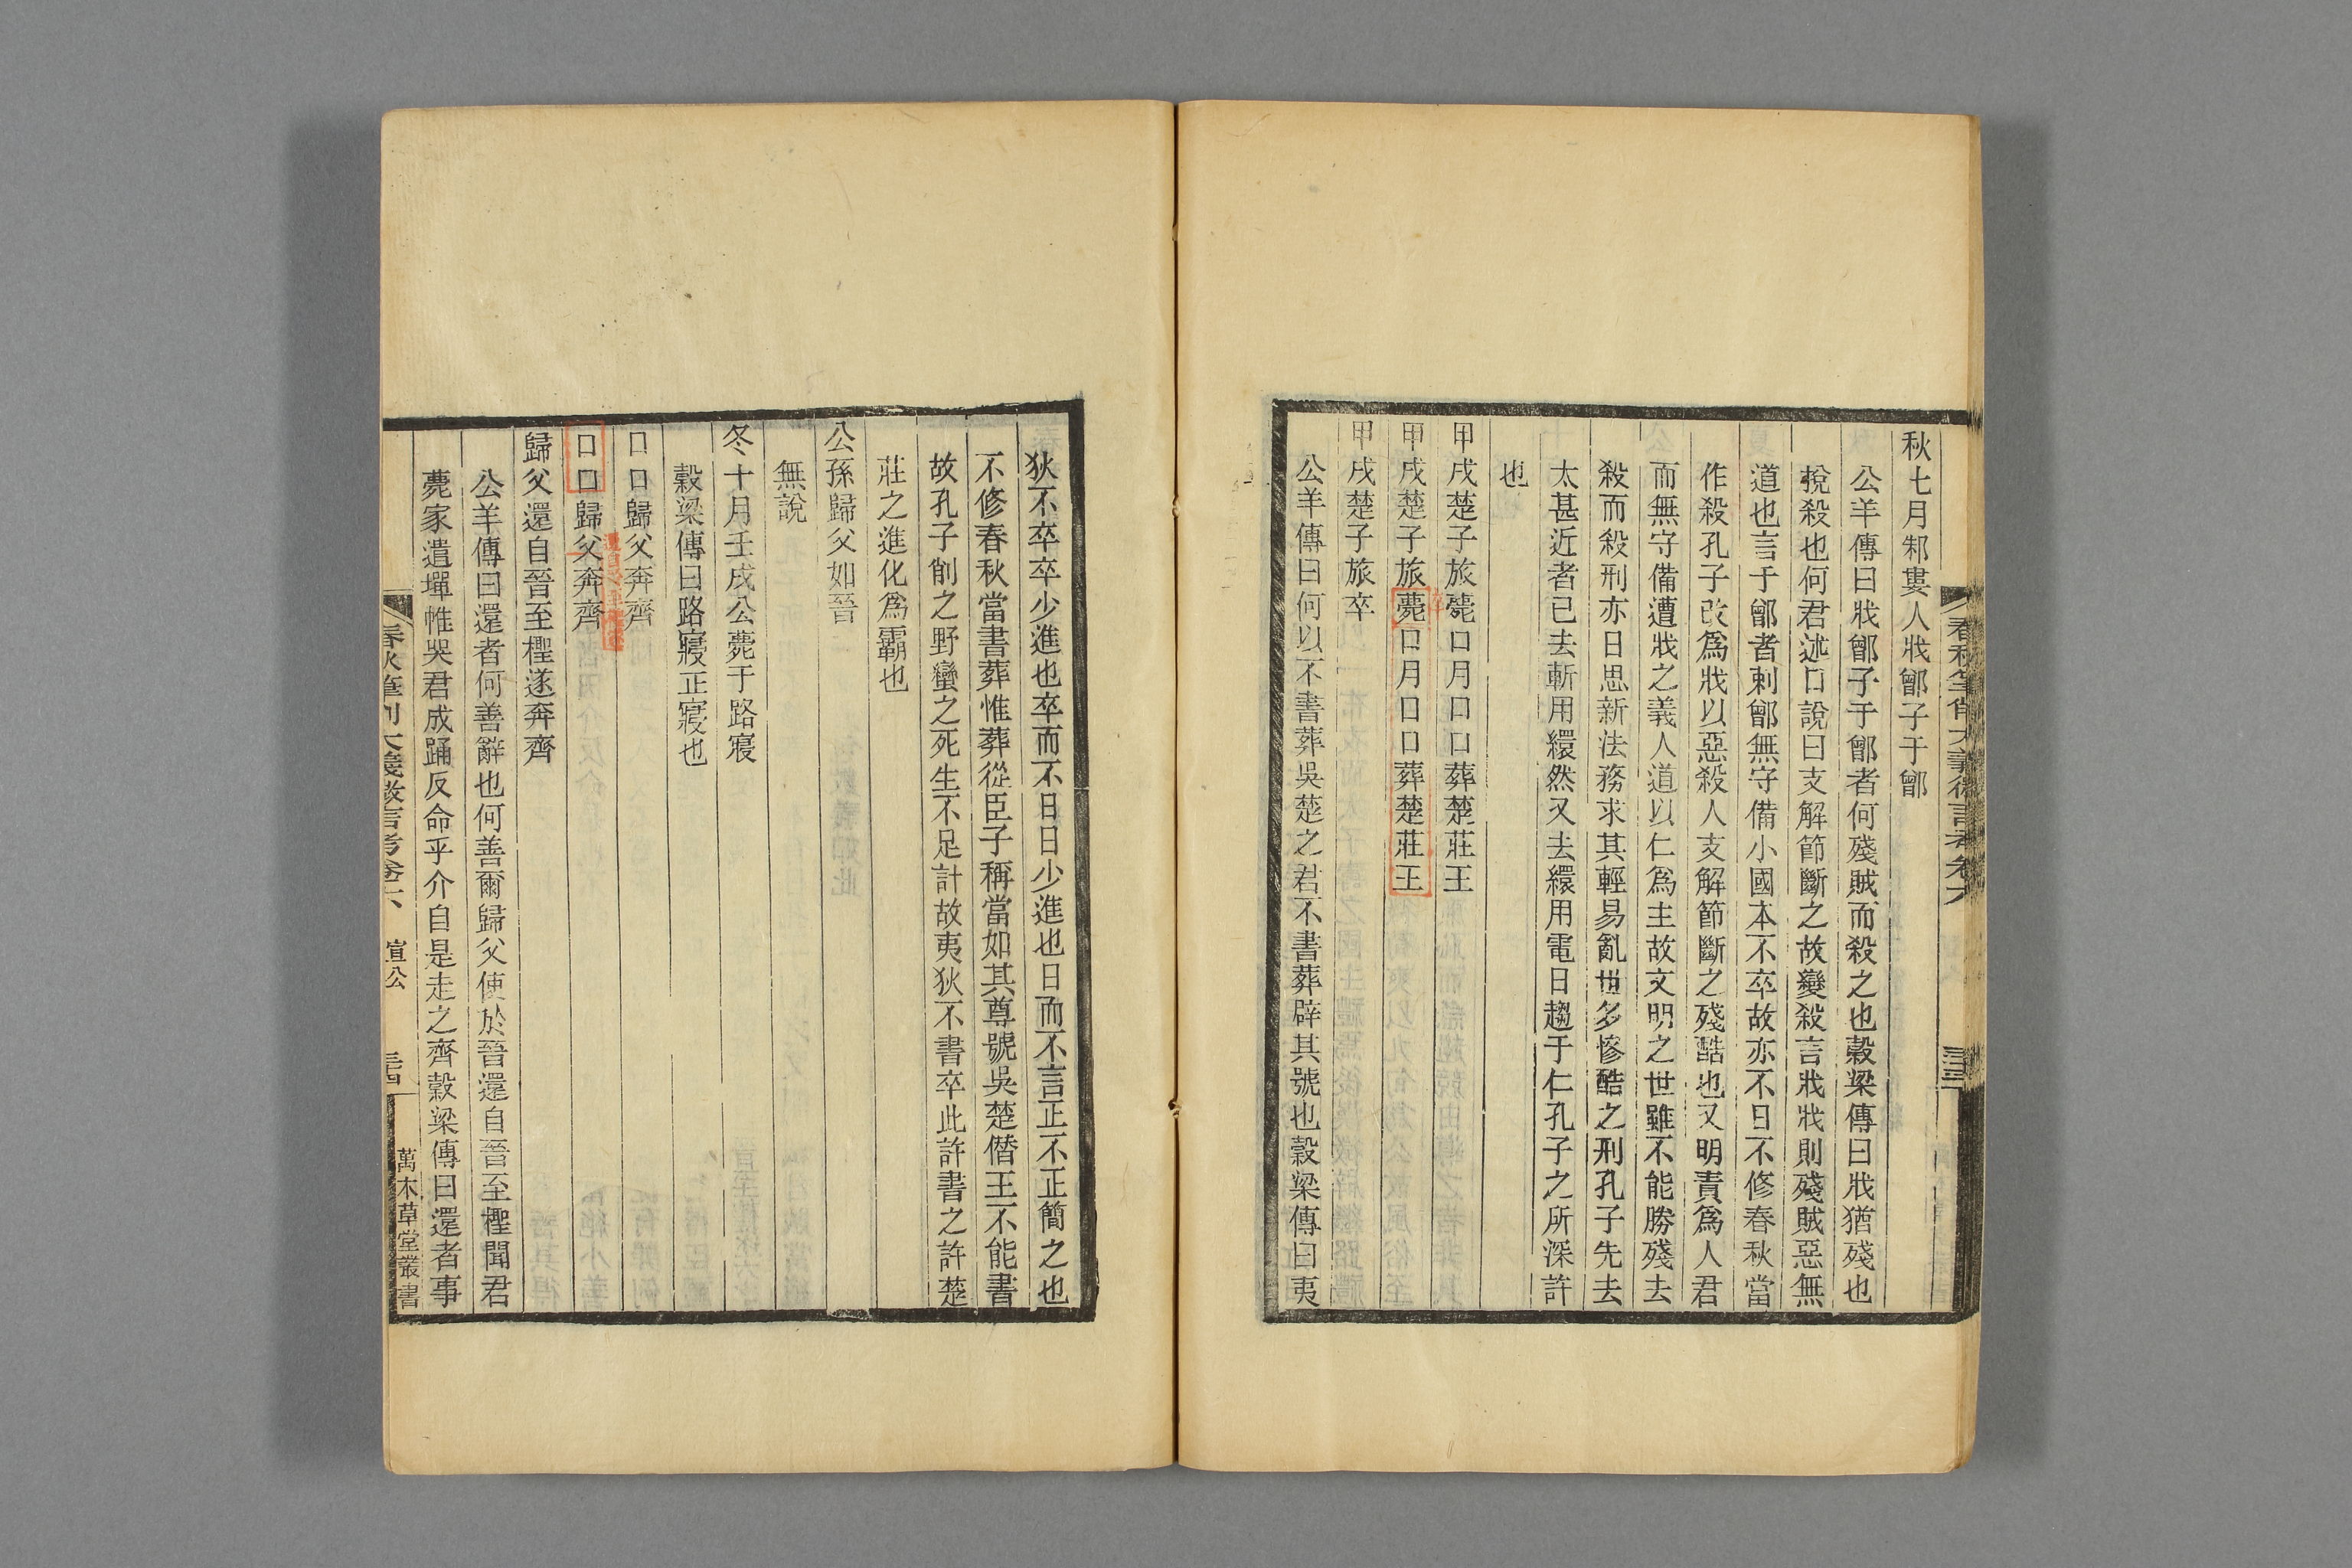 春秋筆削大義微言考卷六
三十三
秋七月邾婁人戕鄫子于鄫
公羊傳曰戕鄫子于鄫者何殘賊而殺之也穀梁傳曰戕猶殘也
捝殺也何君述口說曰支解節斷之故變殺言戕戕則殘賊惡無
道也言于鄫者刺鄫無守備小國本不卒故亦不日不修春秋當
作殺孔子改為戕以惡殺人支解節斷之殘酷也又明責為人君
而無守備遭戕之義人道以仁為主故文明之世雖不能勝殘去
殺而殺刑亦日思新法務求其輕易亂世多慘酷之刑孔子先去
太甚近者已去斬用繯然又去繯用電日趨于仁孔子之所深許
也
甲戌楚子旅薨口月口口葬楚莊王
甲戌楚子旅薨口月口口葬楚莊王
卒
甲戌楚子旅卒
公羊傳曰何以不書葬吳楚之君不書葬辟其號也穀梁傳曰夷
狄不卒卒少進也卒而不日日少進也日而不言正不正簡之也
不修春秋當書葬惟葬從臣子稱當如其尊號吳楚僭王不能書
故孔子削之野蠻之死生不足計故夷狄不書卒此許書之許楚
莊之進化為霸也
公孫歸父如晉
無說
冬十月壬戌公薨于路寢
穀梁傳曰路寢正寢也
口口歸父奔齊
口口歸父奔齊
歸父還自晉至檉遂奔齊
公羊傳曰還者何善辭也何善爾歸父使於晉還自晉至檉聞君
薨家遣墠帷哭君成踊反命乎介自是走之齊穀梁傳曰還者事
春秋筆削大義微言考卷六 宣公 三十四
萬木草堂叢書